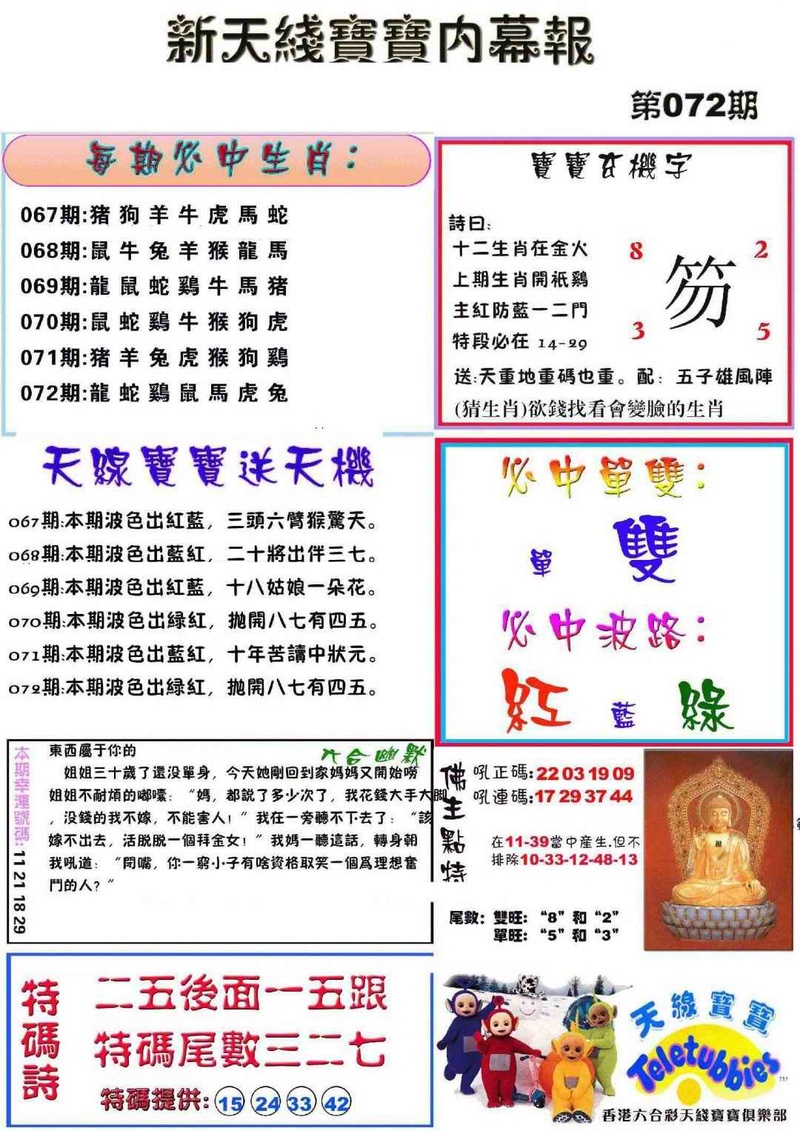 新天綫寶寶内幕報
第072期
每期必中生肖:
067期:猪狗羊牛虎馬蛇
068期:鼠牛兔羊猴龍馬
069期:龍鼠蛇鷄牛馬猪
070期:鼠蛇鷄牛猴狗虎
071期:猪羊兔虎猴狗鷄
072期:龍蛇鷄鼠馬虎兔
寶寶玄機字
詩曰:
十二生肖在金火
上期生肖開衹鷄
主紅防藍一二門
特段必在 14-29
8 2
笏
3 5
送:天重地重碼也重。配: 五子雄風陣
(猜生肖)欲錢找看會變臉的生肖
天線寶寶送天機
067期:本期波色出紅藍, 三頭六臂猴驚天。
068期:本期波色出藍紅, 二十將出伴三七。
069期:本期波色出紅藍, 十八姑娘一朵花。
070期:本期波色出緑紅, 抛開八七有四五。
071期:本期波色出藍紅, 十年苦讀中狀元。
072期:本期波色出緑紅, 抛開八七有四五。
必中單雙:
單 雙
必中波路:
紅 藍 綠
本期幸運號碼: 11 21 18 29
六合幽默
東西屬于你的
姐姐三十歲了還没單身, 今天她剛回到家媽媽又開始嘮
姐姐不耐煩的嘟囔: “媽, 都説了多少次了, 我花錢大手大脚
, 没錢的我不嫁, 不能害人! ” 我在一旁聽不下去了: “該
嫁不出去, 活脱脱一個拜金女! ” 我媽一聽這話, 轉身朝
我吼道: “閉嘴, 你一窮小子有啥資格取笑一個爲理想奮
鬥的人? ”
佛主點特
吼正碼: 22 03 19 09
吼連碼: 17 29 37 44
在11-39當中産生.但不
排除10-33-12-48-13
尾數: 雙旺: “8” 和 “2”
單旺: “5” 和 “3”
特碼詩
二五後面一五跟
特碼尾數三二七
特碼提供: 15 24 33 42
天線寶寶
Teletubbies
TM
香港六合彩天綫寶寶俱樂部